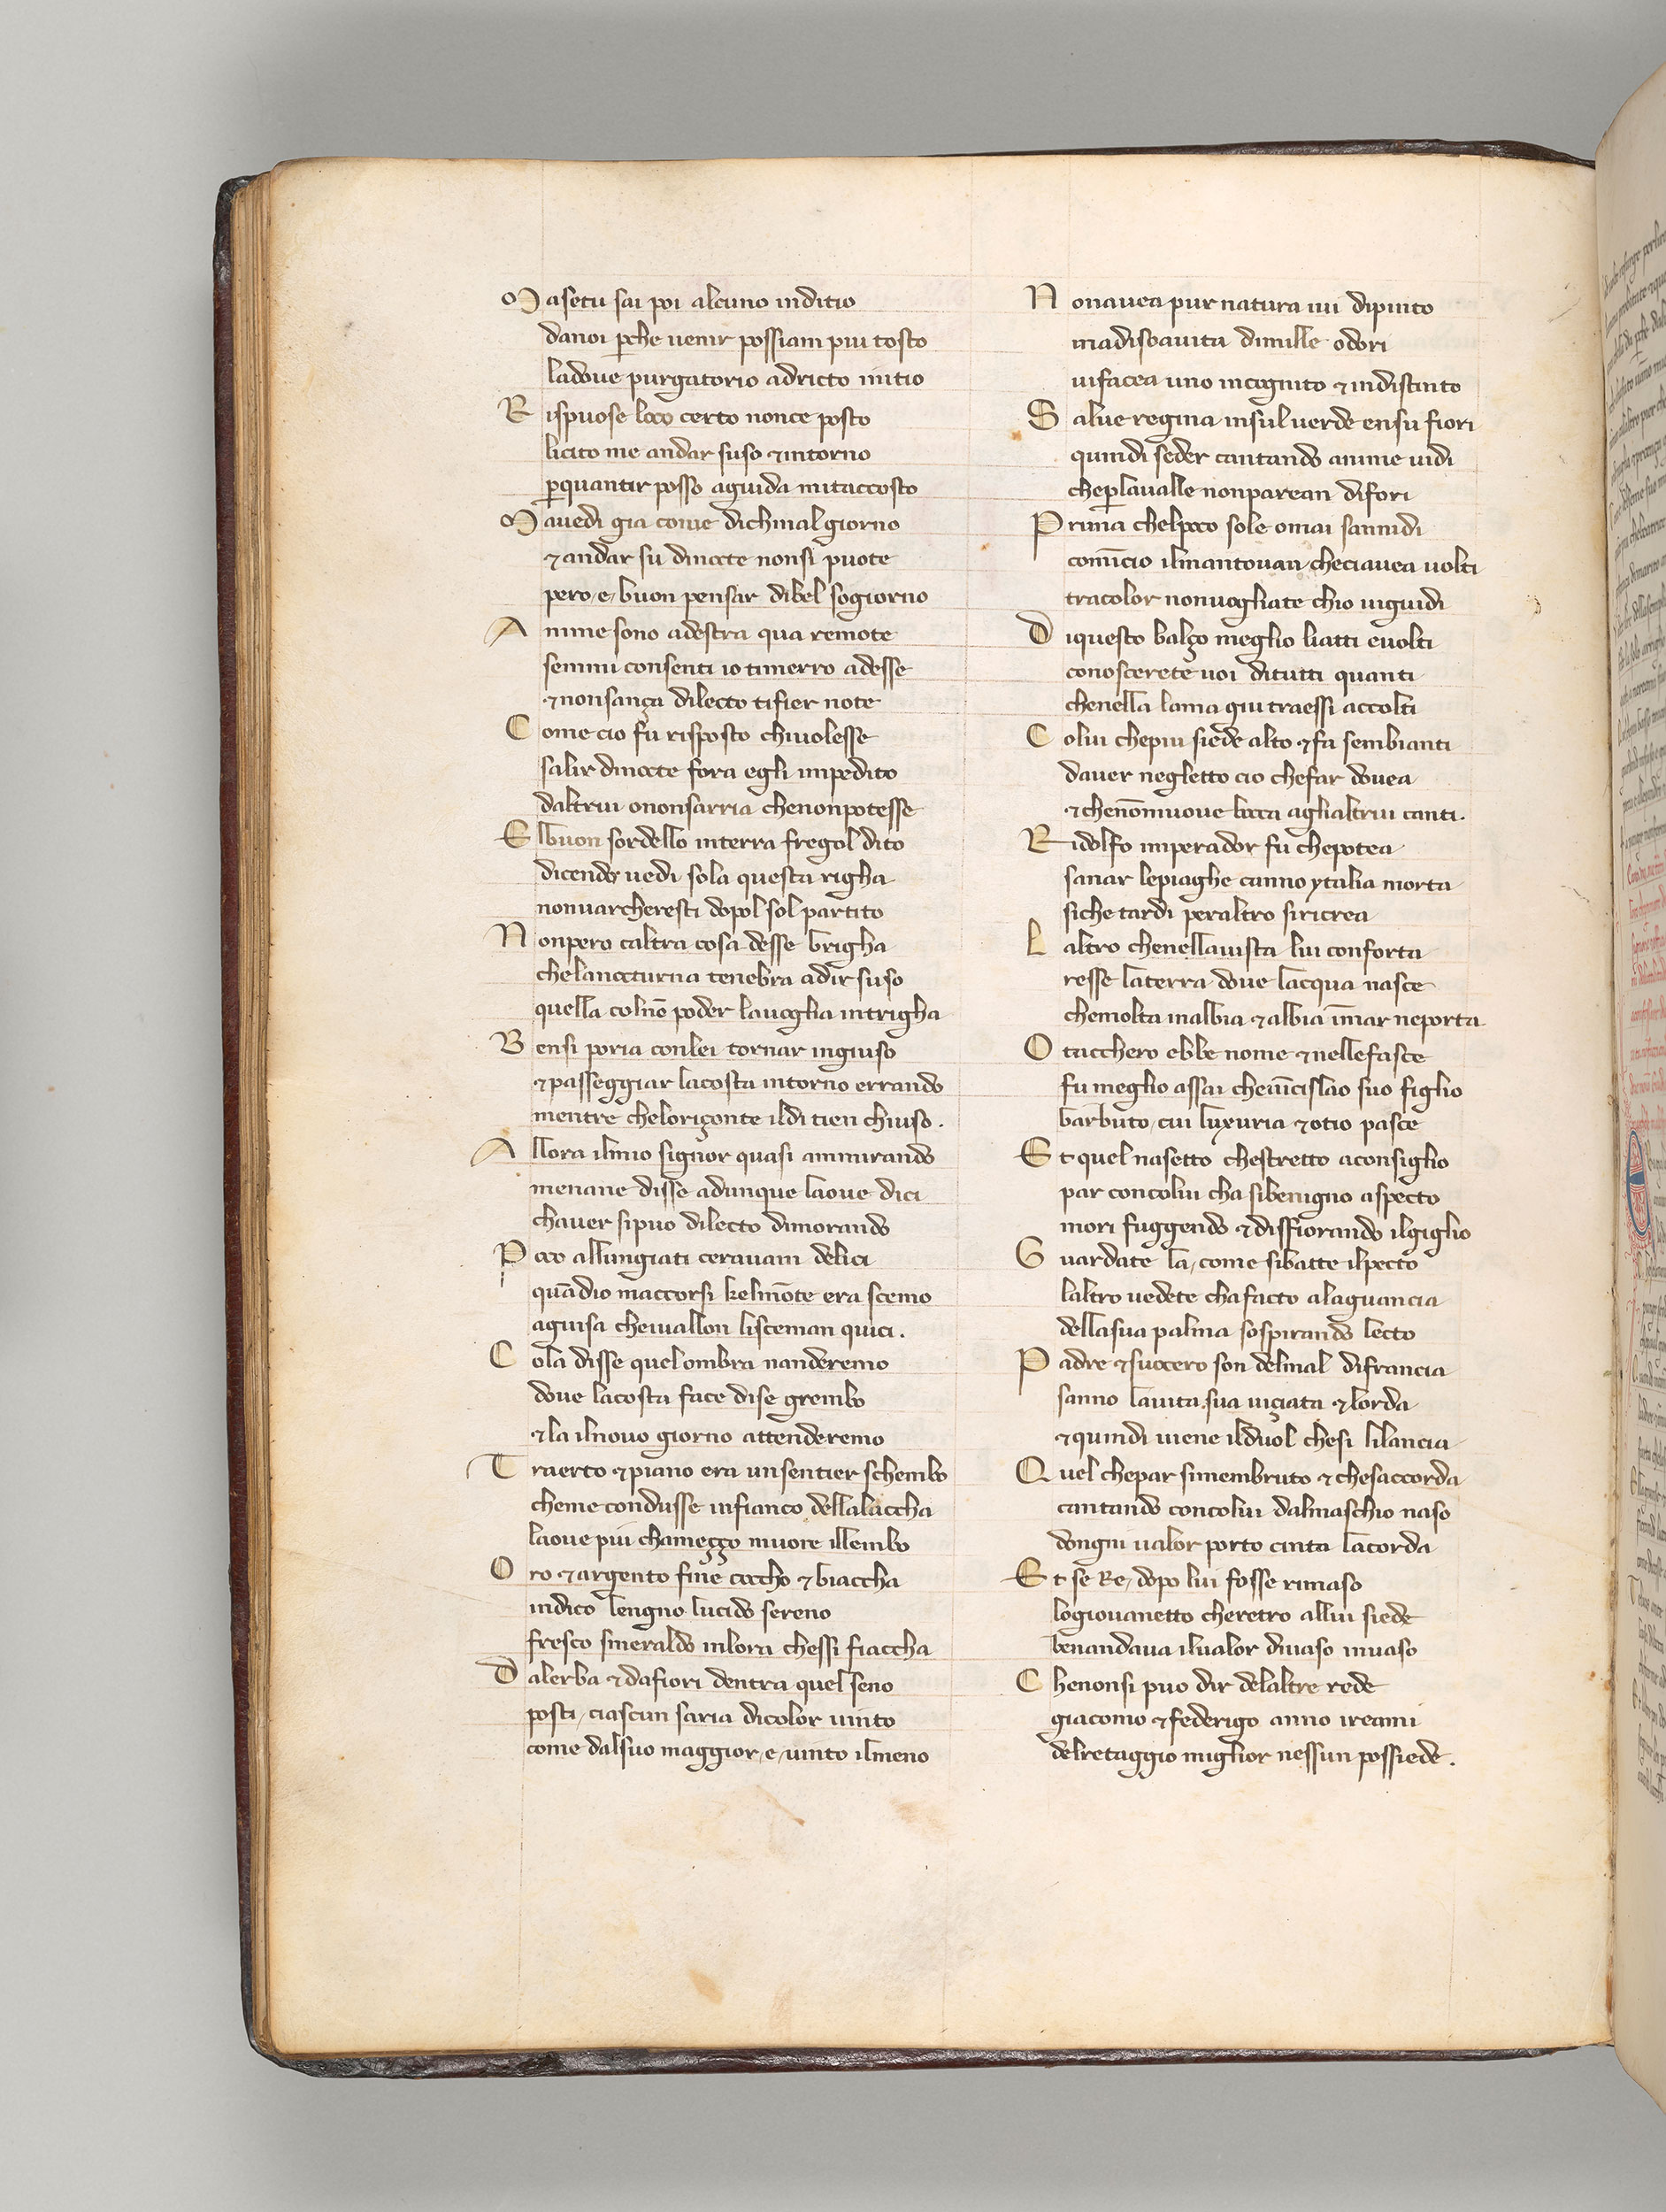 M asetu sai poi alcuno inditio
danoi ꝑche uenir possiam piu tosto
ladoue purgatorio adricto initio
R ispuose loco certo nonce posto
licito me andar suso ⁊intorno
ꝑquantir posso aguida mitaccosto
M auedi gia come dichinal giorno
⁊andar su dinocte nonsi puote
pero/e/buon pensar dibel sogiorno
A nime sono adestra qua remote
semmi consenti io timerro adesse
⁊nonsança dilecto tifier note
C ome cio fu risposto chiuolesse
salir dinocte fora egli impedito
daltrui ononsarria chenonpotesse
E lbuon sordello interra fregol dito
dicendo uedi sola questa righa
nonuarcheresti dopol sol partito
N onpero caltra cosa desse brigha
chelanocturna tenebra adir suso
quella colnō poder lauoglia intrigha
B ensi poria conlei tornar ingiuso
⁊passeggiar lacosta intorno errando
mentre cheloriçonte ildi tien chiuso.
A llora ilmio signor quasi ammirando
menane disse adunque laoue dici
chauer sipuo dilecto dimorando
P oco allungiati cerauam delici
quādio maccorsi kelmōte era scemo
aguisa cheiuallon lisceman quici.
C ola disse quel ombra nanderemo
doue lacosta face dise grembo
⁊la ilnouo giorno attenderemo
T raerto ⁊piano era unsentier schembo
cheme condusse infianco dellalaccha
laoue piu chameçço muore illembo
O ro ⁊argento fine coccho ⁊biaccha
indico lengno lucido sereno
fresco smeraldo inlora chessi fiaccha
D alerba ⁊dafiori dentra quel seno
posti/ciascun saria dicolor uinto
come dalsuo maggior/e/uinto ilmeno
N onauea pur natura iui dipinto
madisoauita dimille odori
uifacea uno incognito ⁊indistinto
S alue regina insul uerde ensu fiori
quindi seder cantando anime uidi
cheꝑlaualle nonparean difori
P rima chelpoco sole omai sannidi
comīcio ilmantouan checiauea uolti
tracolor nonuogliate chio uiguidi
D iquesto balço meglio liatti euolti
conoscerete uoi ditutti quanti
chenella lama giu traessi accolti
C olui chepiu siede alto ⁊fa sembianti
dauer negletto cio chefar douea
⁊chenōmuoue bocca aglialtrui canti.
R idolfo imperador fu chepotea
sanar lepiaghe canno ytalia morta
siche tardi peraltro siricrea
L altro chenellauista lui conforta
resse laterra doue lacqua nasce
chemolta inalbia ⁊albia īmar neporta
O tacchero ebbe nome ⁊nellefasce
fu meglio assai cheuīcislao suo figlio
barbuto/cui luxuria ⁊otio pasce
E t quel nasetto chestretto aconsiglio
par concolui cha sibenigno aspecto
mori fuggendo ⁊disfiorando ilgiglio
G uardate la/come sibatte ilpecto
laltro uedete chafacto alaguancia
dellasua palma sospirando lecto
P adre ⁊suocero son delmal difrancia
sanno lauita sua uiçiata ⁊lorda
⁊quindi uiene ilduol chesi lilancia
Q uel chepar simembruto ⁊chesaccorda
cantando concolui dalmaschio naso
dongni ualor porto cinta lacorda
E t se Re/dopo lui fosse rimaso
logiouanetto cheretro allui siede
benandaua iluaIor diuaso inuaso
C henonsi puo dir delaltre rede
giacomo ⁊federigo anno ireami
delretaggio miglior nessun possiede.